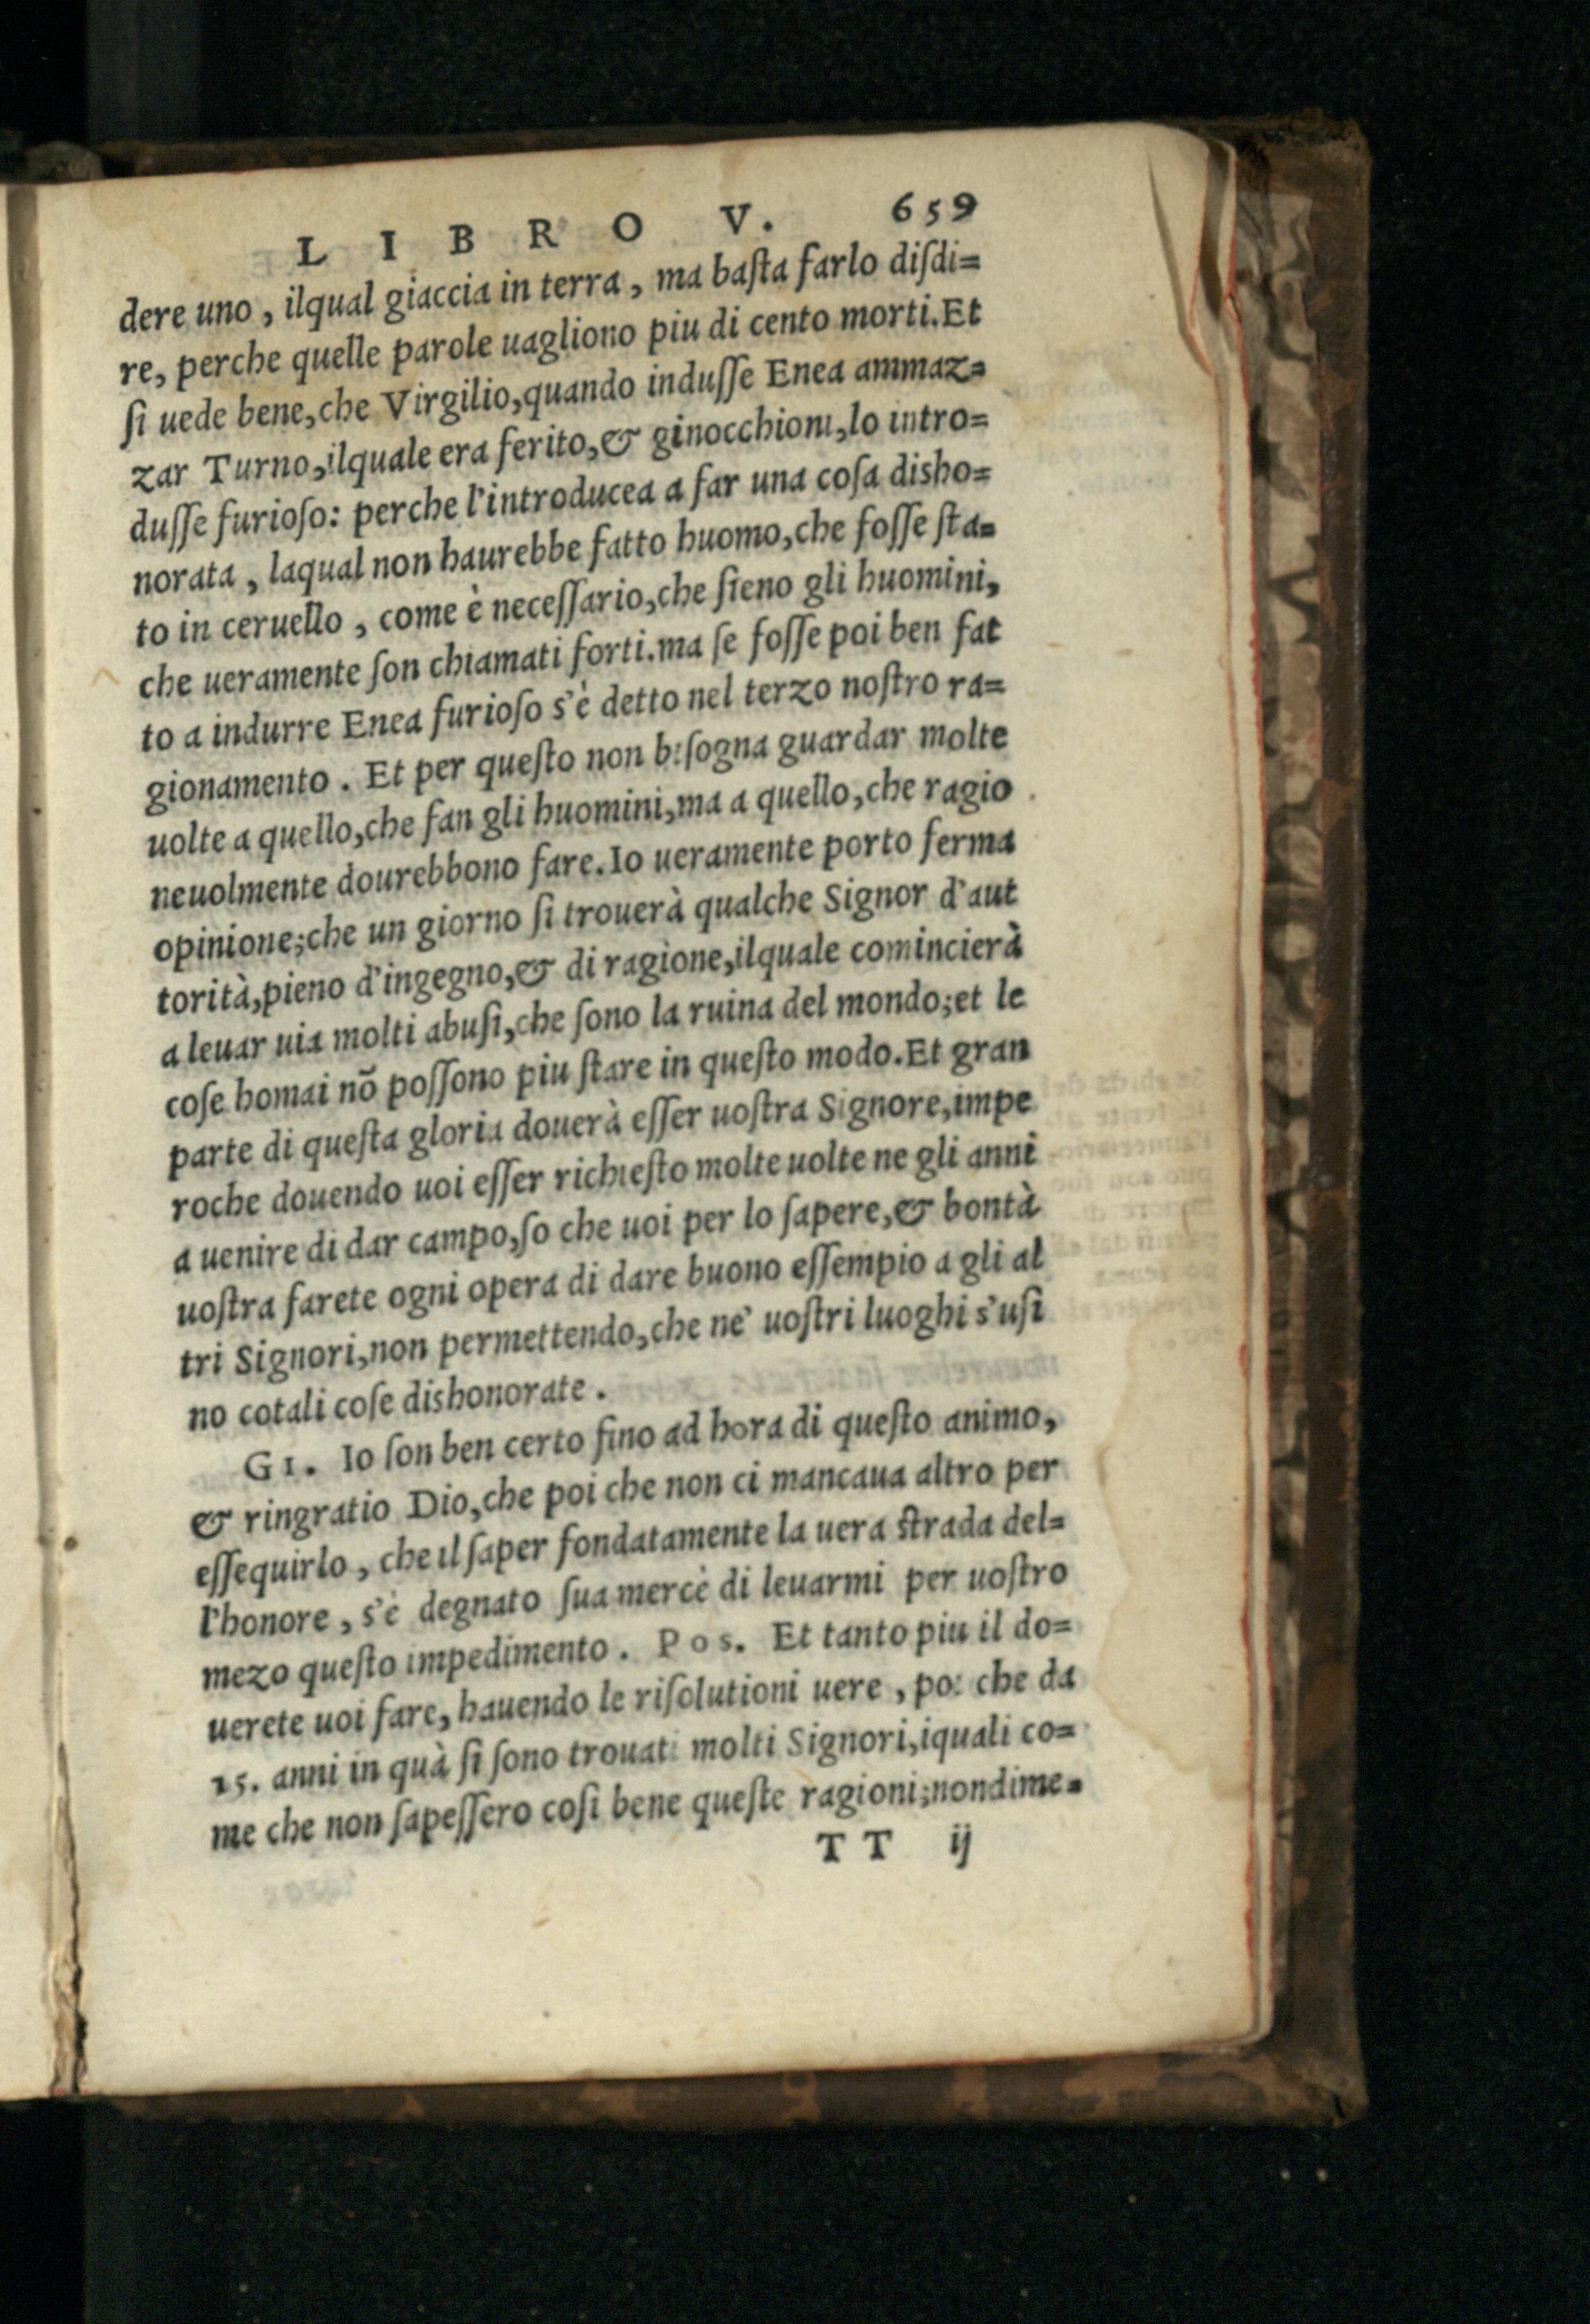 LIBRO V. 659
dere uno, ilqual giaccia in terra, ma baſta farlo diſdi=
re, perche quelle parole uagliono piu di cento morti. Et
ſi uede bene, che Virgilio, quando induſſe Enea ammaz=
zar Turno, ilquale era ferito, & ginocchioni, lo intro=
duſſe furioſo: perche l'introducea a far una coſa disho=
norata, laqual non haurebbe fatto huomo, che foſſe ſta=
to in ceruello, come è neceſſario, che ſieno gli huomini,
che ueramente ſon chiamati forti. ma ſe foſſe poi ben fat
to a indurre Enea furioſo s'è detto nel terzo noſtro ra=
gionamento. Et per queſto non biſogna guardar molte
uolte a quello, che fan gli huomini, ma a quello, che ragio
neuolmente dourebbono fare. Io ueramente porto ferma
opinione; che un giorno ſi trouerà qualche Signor d'aut
torità, pieno d'ingegno, & di ragione, ilquale comincierà
a leuar uia molti abuſi, che ſono la ruina del mondo; et le
coſe homai nō poſſono piu ſtare in queſto modo. Et gran
parte di queſta gloria douerà eſſer uoſtra Signore, impe
roche douendo uoi eſſer richieſto molte uolte ne gli anni
a uenire di dar campo, ſo che uoi per lo ſapere, & bontà
uoſtra farete ogni opera di dare buono eſſempio a gli al
tri Signori, non permettendo, che ne' uoſtri luoghi s'uſi
no cotali coſe dishonorate.
GI. Io ſon ben certo fino ad hora di queſto animo,
& ringratio Dio, che poi che non ci mancaua altro per
eſſequirlo, che il ſaper fondatamente la uera ſtrada del=
l'honore, s'è degnato ſua mercè di leuarmi per uoſtro
mezo queſto impedimento. Pos. Et tanto piu il do=
uerete uoi fare, hauendo le riſolutioni uere, poi che da
15. anni in quà ſi ſono trouati molti Signori, iquali co=
me che non ſapeſſero coſi bene queſte ragioni; nondime=
TT ij